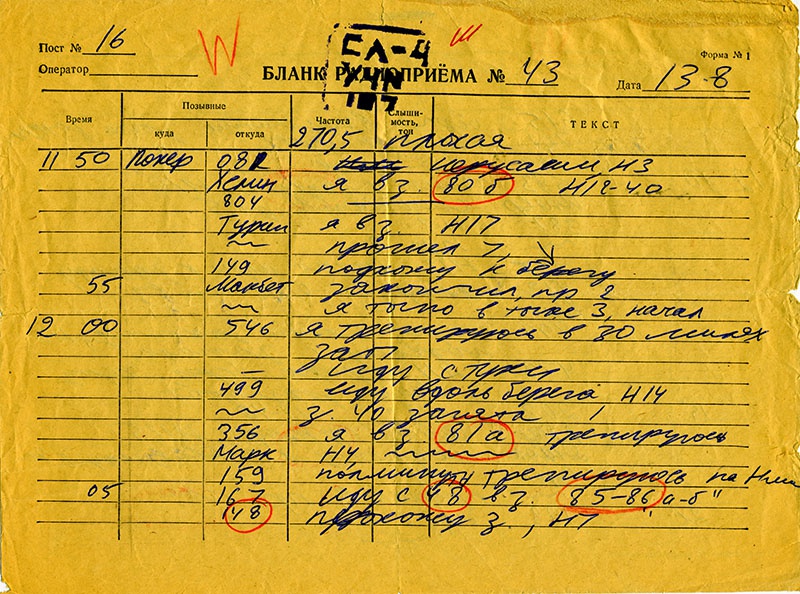 Пост № 16
Форма № 1
Оператор
БЛАНК РАДИОПРИЁМА № 43
Дата 13-8
Время
Позывные
куда
откуда
Частота
Слышимость, тон
ТЕКСТ
270,5 плохая
11 50 Покер 081 Н3
Хелин я в з. 80-б Н12-40
804
Турин я в з. Н17
прошел
149 подхожу к берегу
55 Макбет закончил пр 2
я точно в точке 3, начал
12 00 546 я тренируюсь в 30 милях
зап
— иду с
499 иду вдоль берега Н14
з. 40 занята
356 я в з. 81а тренируюсь
Марк Н4
159 полминуты тренируюсь на
05 167 иду с 48 в з. 85-86 "а-б"
148 прохожу з., Н7